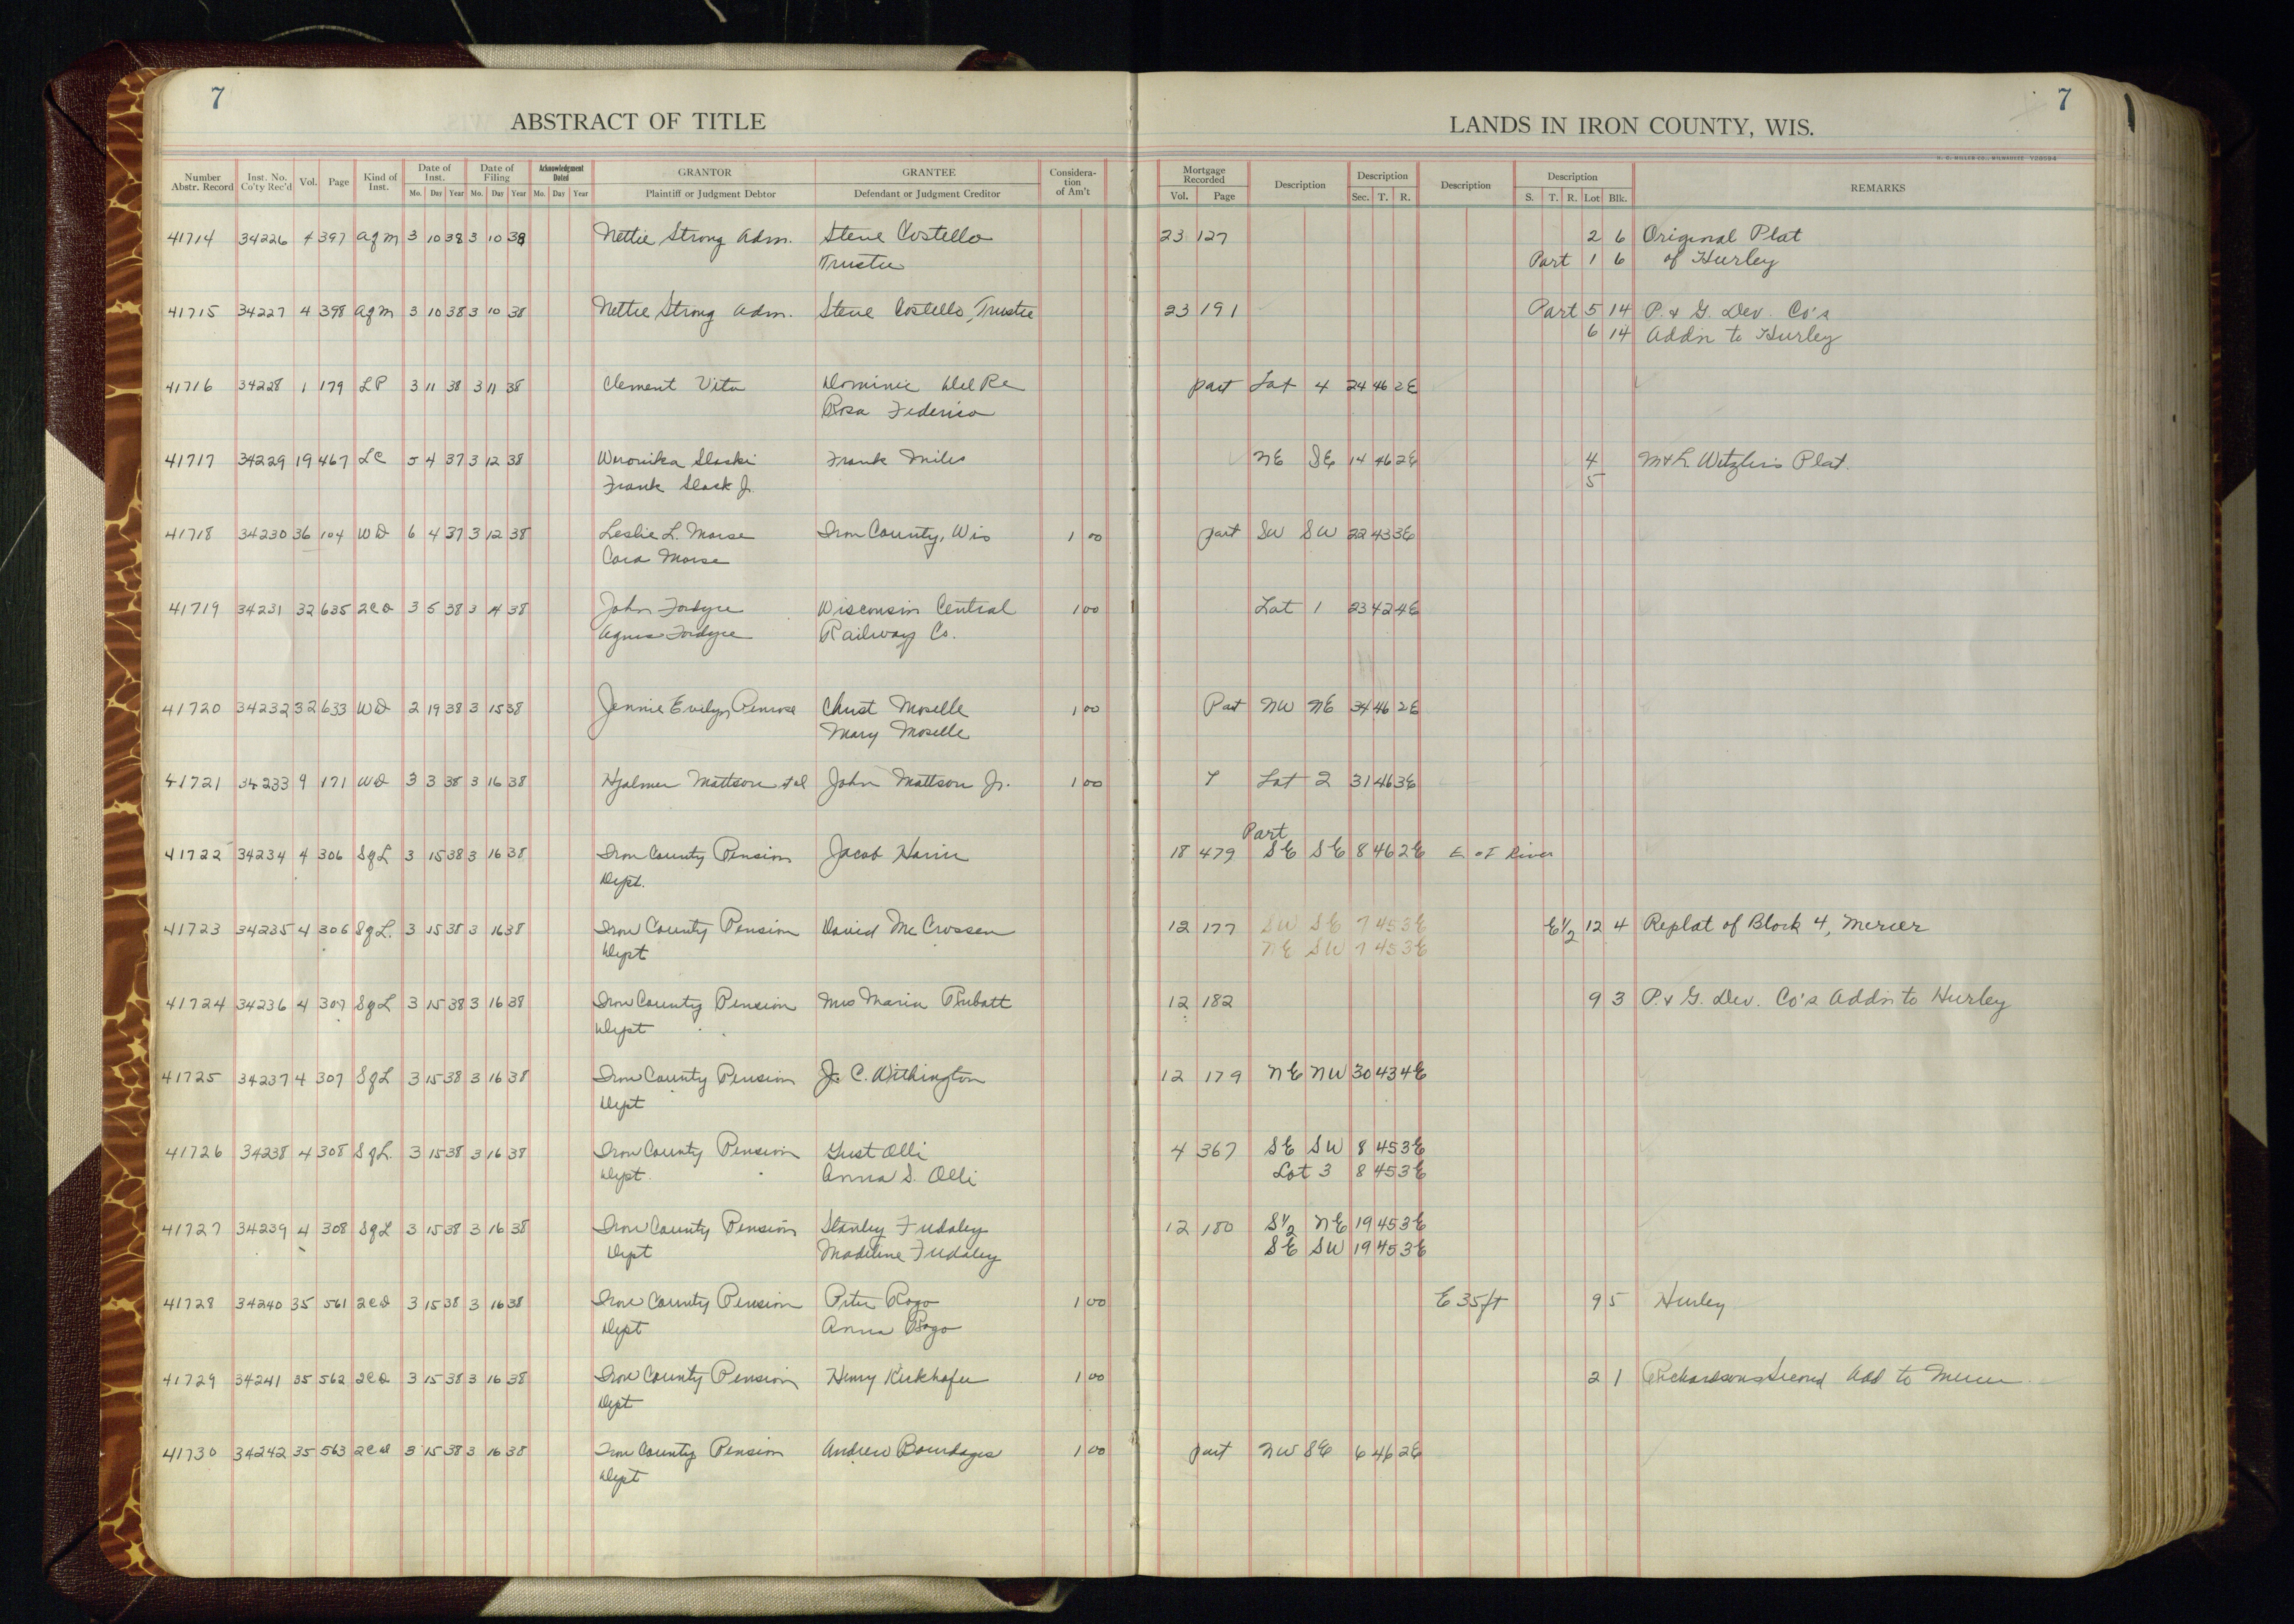 7
ABSTRACT OF TITLE
7
LANDS IN IRON COUNTY, WIS.
Number Abstr. Record Inst. No. Co'ty Rec'd Vol. Page Kind of Inst. Date of Inst. Mo. Day Year Date of Filing Mo. Day Year Acknowledgment Dated Mo. Day Year GRANTOR Plaintiff or Judgment Debtor GRANTEE Defendant or Judgment Creditor Considera-tion of Am't Mortgage Recorded Vol. Page Description Description Sec. T. R. Description Description S. T. R. Lot Blk. REMARKS
41714 34226 4 397 agm 3 10 38 3 10 38 Nettie Strong Adm. Steve Costello 23 127 2 6 Original Plat
Trustee Part 1 6 of Hurley
41715 34227 4 398 agm 3 10 38 3 10 38 Nettie Strong Adm. Steve Costello, Trustee 23 191 Part 5 14 P. & G. Dev. Co's
6 14 Addn to Hurley
41716 34228 1 179 LP 3 11 38 3 11 38 Clement Vita Dominic Del Re part Lot 4 24 46 2E
Rosa Federico
41717 34229 19 467 LC 5 4 37 3 12 38 Weronika Slaski Frank Miles NE SE 14 46 2E 4 M & L Wetzler's Plat.
Frank Slask Jr. 5
41718 34230 36 104 WD 6 4 37 3 12 38 Leslie L. Morse Iron County, Wis 1 00 part SW SW 22 43 3E
Cora Morse
41719 34231 32 635 2CD 3 5 38 3 14 38 John Fordyce Wisconsin Central 1 00 Lot 1 23 42 4E
Agnes Fordyce Railway Co.
41720 34232 32 633 WD 2 19 38 3 15 38 Jennie Evelyn Penrose Christ Moselle 1 00 Part NW NE 34 46 2E
Mary Moselle
41721 34233 9 171 WD 3 3 38 3 16 38 Hjalmer Mattson et al John Mattson Jr. 1 00 Lot 2 31 46 3E
Part
41722 34234 4 306 SgL 3 15 38 3 16 38 Iron County Pension Jacob Harin 18 479 SE SE 8 46 2E E of River
Dept.
41723 34235 4 306 SgL. 3 15 38 3 16 38 Iron County Pension David McCrossen 12 177 SW SE 7 45 3E E½ 12 4 Replat of Block 4, Mercer
Dept NE SW 7 45 3E
41724 34236 4 307 SgL 3 15 38 3 16 38 Iron County Pension Mrs Maria Rubatt 12 182 9 3 P. & G. Dev. Co's Addn to Hurley
Dept
41725 34237 4 307 SgL 3 15 38 3 16 38 Iron County Pension J. C. Withington 12 179 NE NW 30 43 4E
Dept
41726 34238 4 308 SgL. 3 15 38 3 16 38 Iron County Pension Gust Olli 4 367 SE SW 8 45 3E
Dept. Anna S. Olli Lot 3 8 45 3E
41727 34239 4 308 SgL 3 15 38 3 16 38 Iron County Pension Stanley Fudaley 12 180 S½ NE 19 45 3E
Dept Madeline Fudaley SE SW 19 45 3E
41728 34240 35 561 2CD 3 15 38 3 16 38 Iron County Pension Peter Rogo 1 00 E 35 ft 9 5 Hurley
Dept Anna Rogo
41729 34241 35 562 2CD 3 15 38 3 16 38 Iron County Pension Henry Kirkhofer 1 00 2 1 Richardsons Second Add to Mercer
Dept
41730 34242 35 563 2CD 3 15 38 3 16 38 Iron County Pension Andrew Bourdages 1 00 part NW SE 6 46 2E
Dept